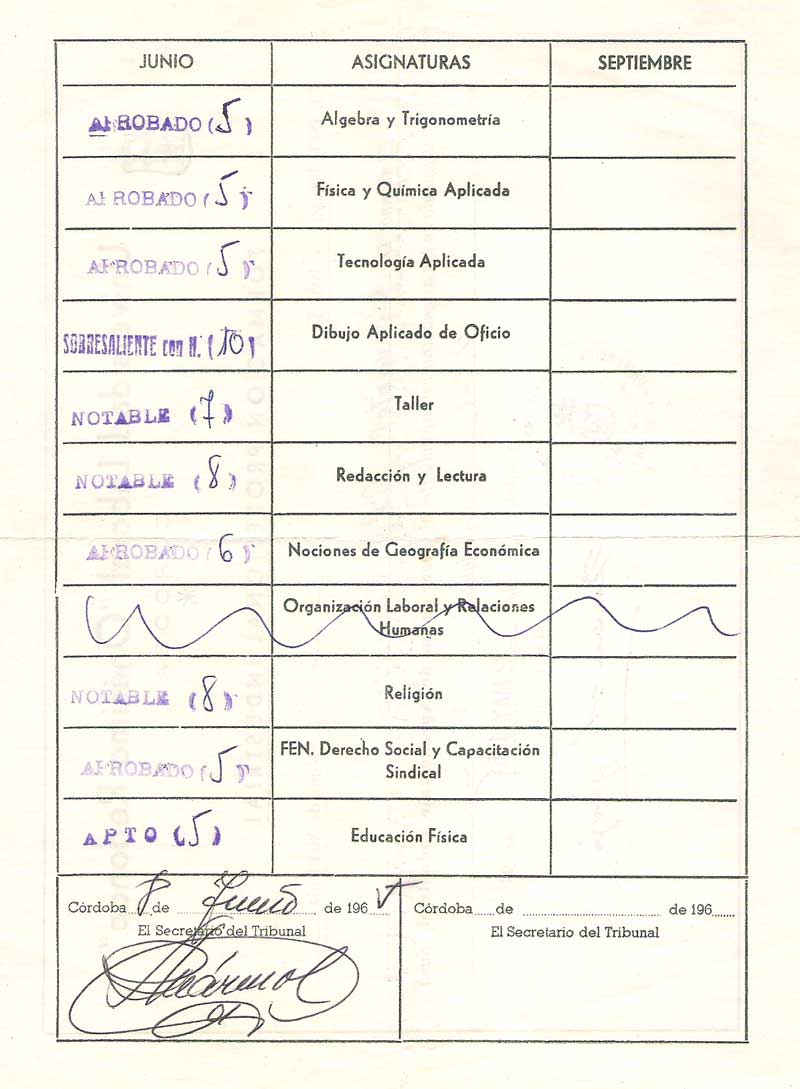 JUNIO ASIGNATURAS SEPTIEMBRE
APROBADO (5) Algebra y Trigonometría
APROBADO (5) Física y Química Aplicada
APROBADO (5) Tecnología Aplicada
SOBRESALIENTE con M. (10) Dibujo Aplicado de Oficio
NOTABLE (7) Taller
NOTABLE (8) Redacción y Lectura
APROBADO (6) Nociones de Geografía Económica
Organización Laboral y Relaciones
Humanas
NOTABLE (8) Religión
APROBADO (5) FEN. Derecho Social y Capacitación
Sindical
APTO (5) Educación Física
Córdoba 8 de Junio de 1965 Córdoba ..... de .............................. de 196......
El Secretario del Tribunal El Secretario del Tribunal
Mármol